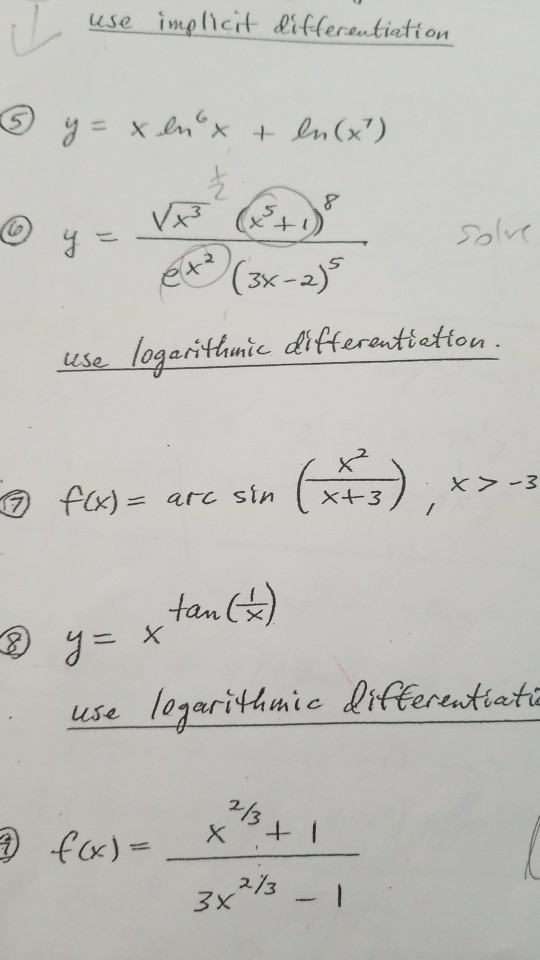 use implicit differentiation
⑤ y = x ln⁶x + ln(x⁷)
1/2
⑥ y = √x³ (x⁵+1)⁸ / e^x² (3x-2)⁵ solve
use logarithmic differentiation.
⑦ f(x) = arc sin (x²/(x+3)), x > -3
⑧ y = x^tan(1/x)
use logarithmic differentiati
f(x) = (x^2/3 + 1) / (3x^2/3 - 1)